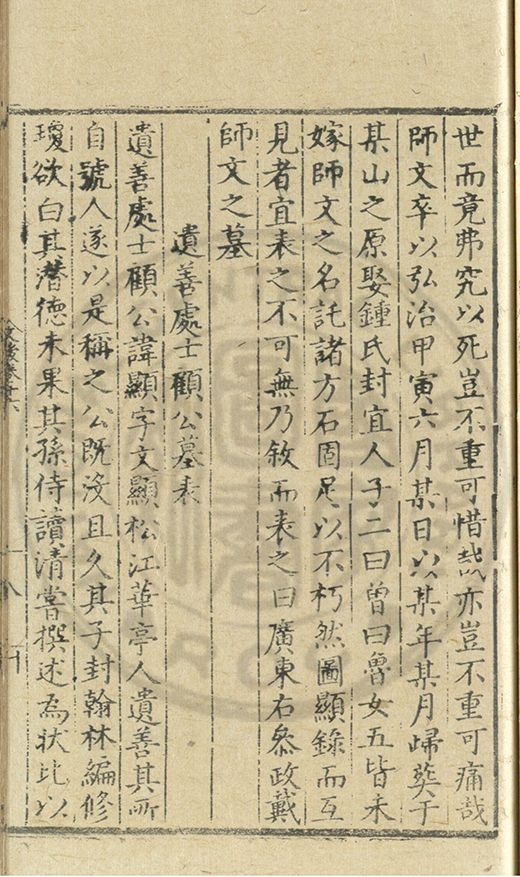 世而竟弗究以死豈不重可惜哉亦豈不重可痛哉
師文卒以弘治甲寅六月某日以某年某月歸葬于
某山之原娶鍾氏封宜人子二曰曾曰魯女五皆未
嫁師文之名託諸方石固足以不朽然圖顯錄而互
見者宜表之不可無乃敘而表之曰廣東右叅政戴
師文之墓
遺善處士顧公墓表
遺善處士顧公諱顯字文顯松江華亭人遺善其所
自號人遂以是稱之公既沒且久其子封翰林編修
瓊欲白其潛德未果其孫侍讀清嘗撰述為狀比以